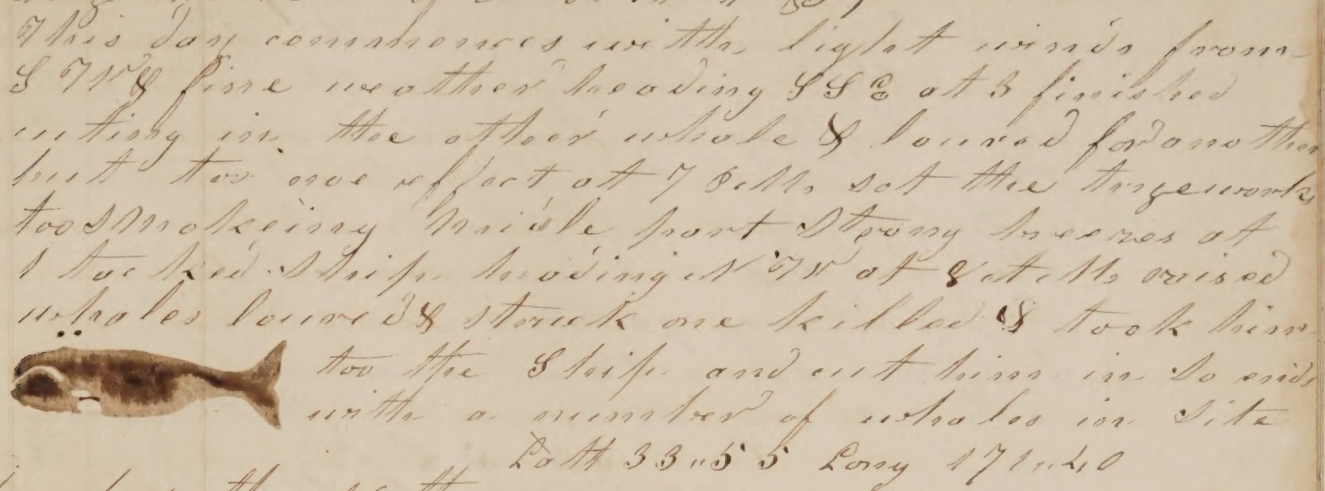 This day commences with light winds from
S W & fine weather heading S S E at 3 finished
cuting in the other whale & loured for another
but too noe effect at 7 Bells sat the trye works
too Smokeing Midle part Strong breezes at
1 tacked Ship heading N W at 8 at raised
whales loured & struck one killed & took him
too the Ship and cut him in So ends
with a number of whales in Site
Latt 33"55 Long 171"40